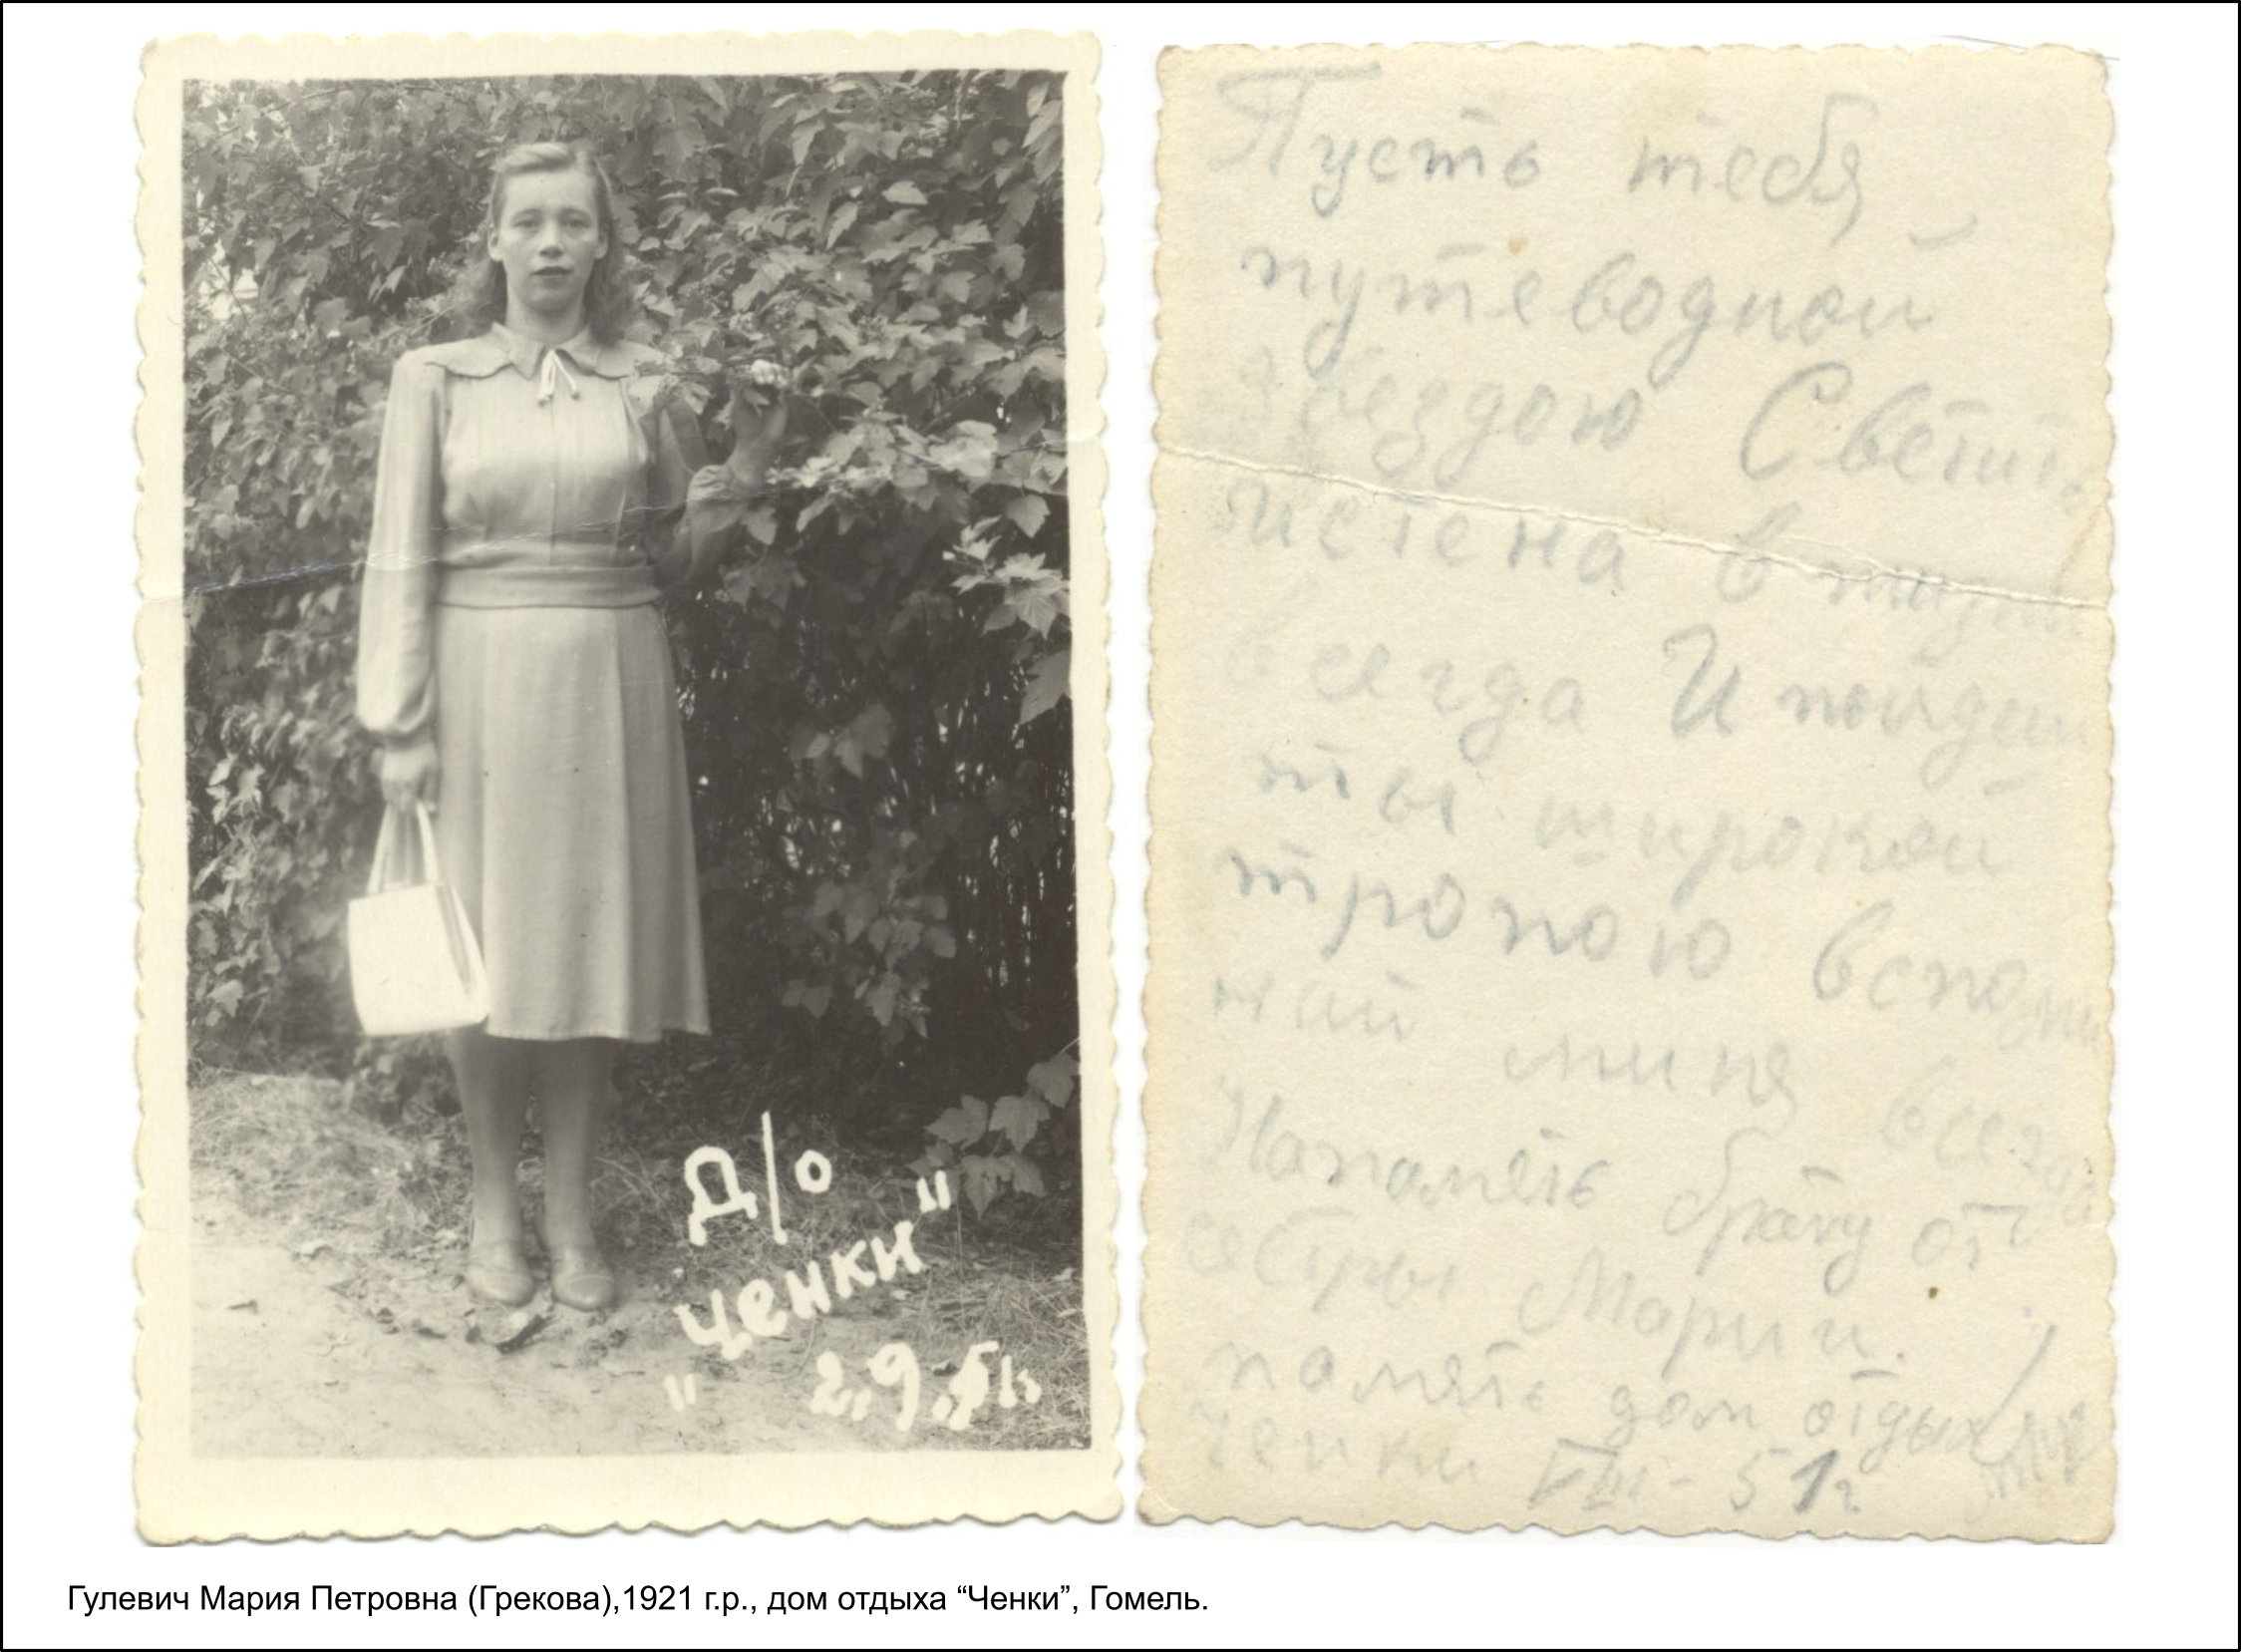 Д/о
"Ченки"
2 9 51г.
Пусть тебя
путеводной
звездою Светит
истена в жизни
всегда И пойдеш
ты широкой
тропою вспоми
най миня всегда
Напомять брату от
сестры Марии.
помять дом отдыха
Ченки VIII - 51г
Гулевич Мария Петровна (Грекова),1921 г.р., дом отдыха “Ченки”, Гомель.